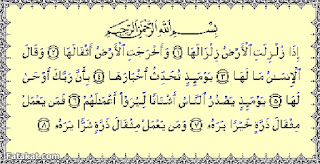 بِسْمِ ٱللَّهِ ٱلرَّحْمَٰنِ ٱلرَّحِيمِ
إِذَا زُلْزِلَتِ ٱلْأَرْضُ زِلْزَالَهَا ١ وَأَخْرَجَتِ ٱلْأَرْضُ أَثْقَالَهَا ٢ وَقَالَ
ٱلْإِنسَٰنُ مَا لَهَا ٣ يَوْمَئِذٍ تُحَدِّثُ أَخْبَارَهَا ٤ بِأَنَّ رَبَّكَ أَوْحَىٰ
لَهَا ٥ يَوْمَئِذٍ يَصْدُرُ ٱلنَّاسُ أَشْتَاتًا لِّيُرَوْا۟ أَعْمَٰلَهُمْ ٦ فَمَن يَعْمَلْ
مِثْقَالَ ذَرَّةٍ خَيْرًا يَرَهُۥ ٧ وَمَن يَعْمَلْ مِثْقَالَ ذَرَّةٍ شَرًّا يَرَهُۥ ٨
Fatakat.com